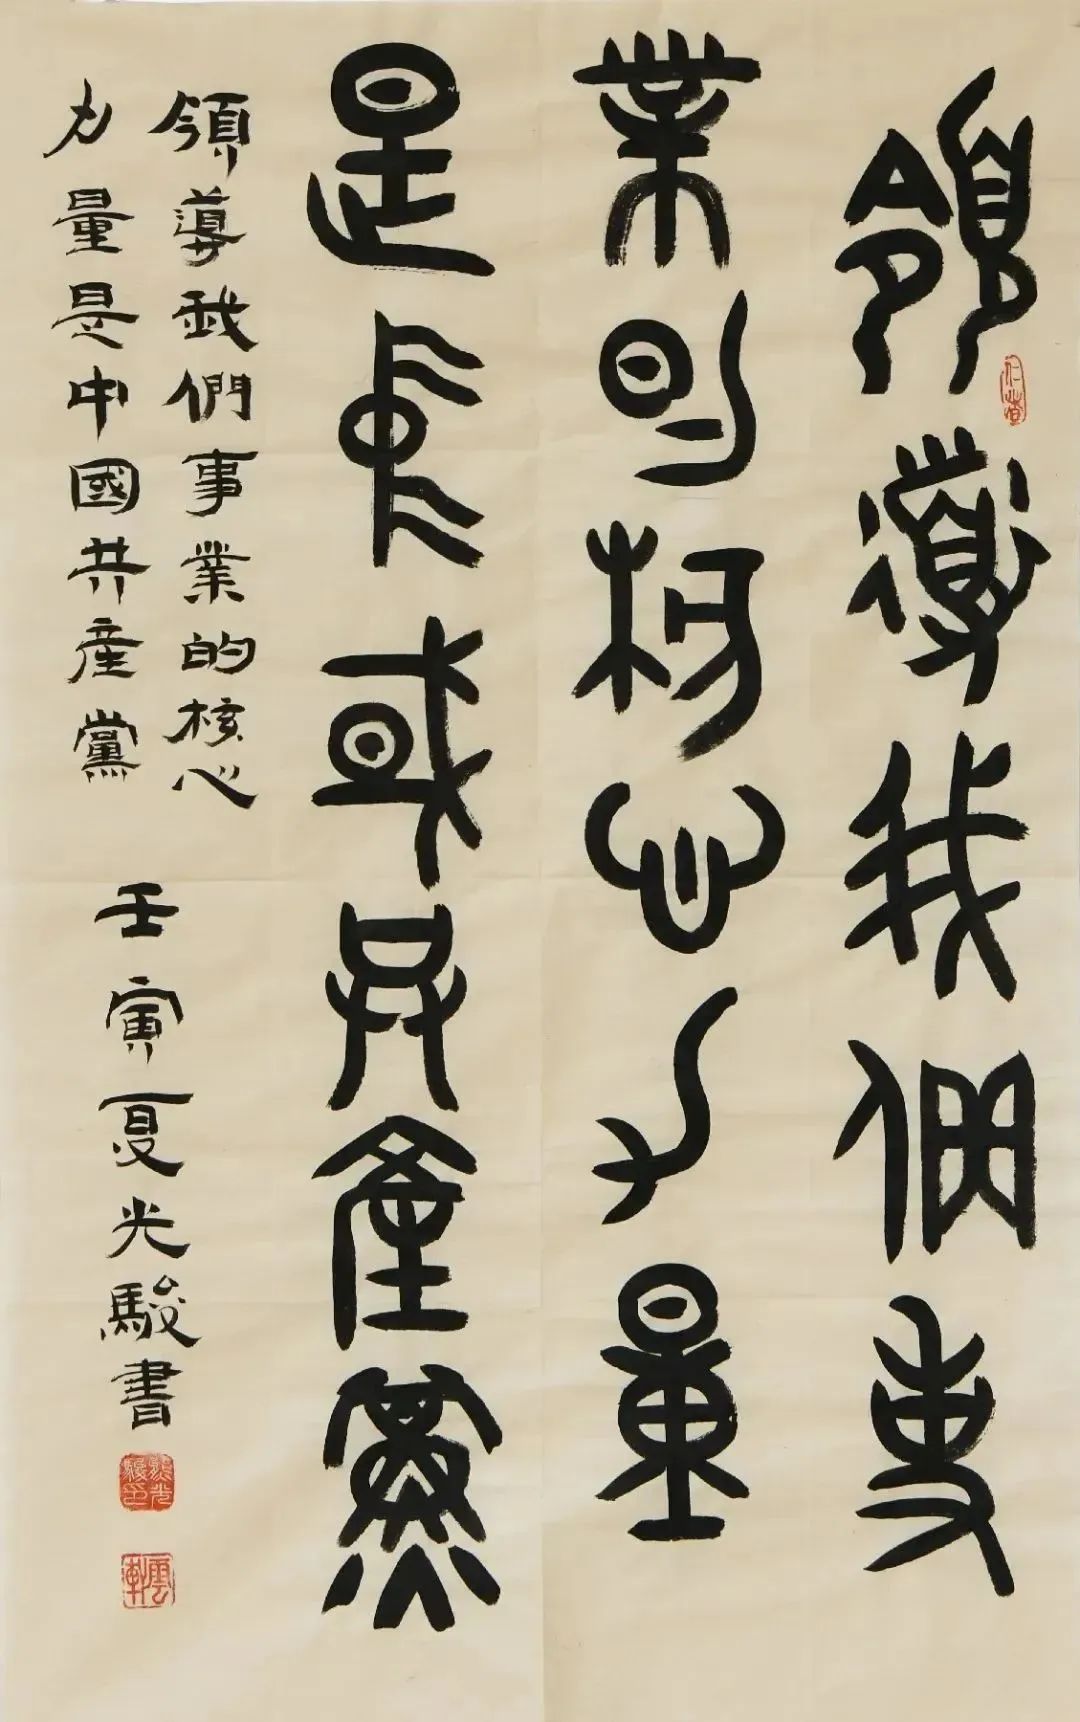 領導我們事
業的核心力量
是中國共產黨
領導我們事業的核心
力量是中國共產黨
壬寅夏光駿書